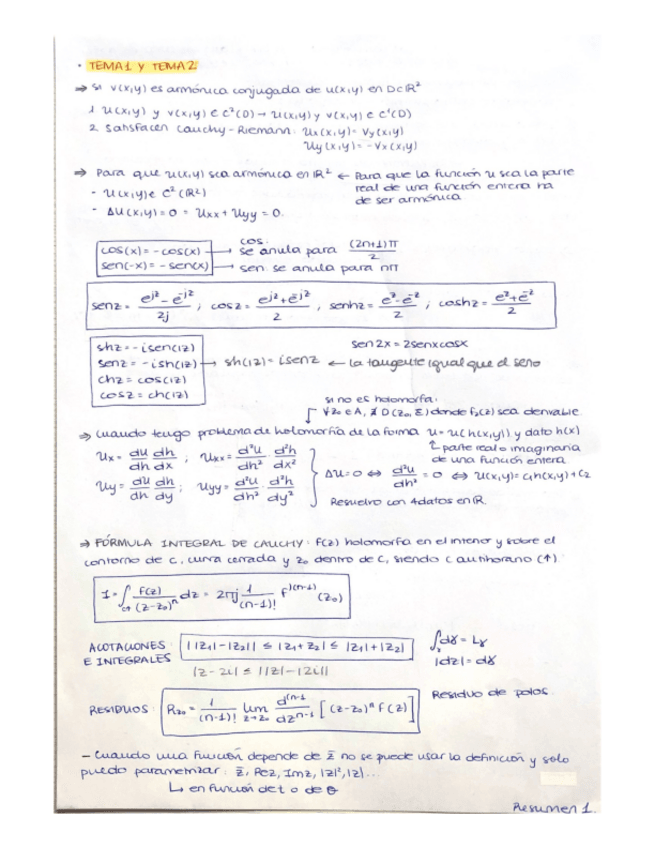 · TEMA 1 Y TEMA 2
⇒ Si v(x,y) es armónica conjugada de u(x,y) en D⊂ℝ²
1. u(x,y) y v(x,y) ∈ C²(D) → u(x,y) y v(x,y) ∈ C¹(D)
2. Satisfacen Cauchy-Riemann: Ux(x,y) = Vy(x,y)
Uy(x,y) = -Vx(x,y)
⇒ Para que u(x,y) sea armónica en ℝ² ← Para que la función u sea la parte
real de una función entera ha
de ser armónica.
- u(x,y) ∈ C²(ℝ²)
- Δu(x,y) = 0 = Uxx + Uyy = 0.
cos(x) = -cos(x) → cos: se anula para (2n+1)π/2
sen(-x) = -sen(x) → sen se anula para nπ
senz = (e^jz - e^-jz)/2j ; cosz = (e^jz + e^-jz)/2 ; senhz = (e^z - e^-z)/2 ; coshz = (e^z + e^-z)/2
shz = -isen(iz)
senz = -ish(iz) → sh(iz) = isenz ← la tangente igual que el seno
chz = cos(iz)
cosz = ch(iz)
sen2x = 2senxcosx
si no es holomorfa:
∀z₀ ∈ A, ∄ D(z₀, ε) donde f₂(z) sea derivable.
⇒ Cuando tengo problema de holomorfía de la forma u = u(h(x,y)) y dato h(x)
↑ parte real o imaginaria
de una función entera
Ux = du/dh dh/dx ; Uxx = d²u/dh² · d²h/dx²
Uy = du/dh dh/dy ; Uyy = d²u/dh² · d²h/dy²
Δu=0 ⇔ d²u/dh² = 0 ⇔ u(x,y) = c₁h(x,y) + c₂
Resuelvo con 4 datos en ℝ.
⇒ FÓRMULA INTEGRAL DE CAUCHY: f(z) holomorfa en el interior y sobre el
contorno de C, curva cerrada y z₀ dentro de C, siendo C antihorario (↑).
I = ∫c+ f(z)/(z-z₀)^n dz = 2πj 1/(n-1)! f^(n-1) (z₀)
ACOTACIONES E INTEGRALES
||z₁|-|z₂|| ≤ |z₁+z₂| ≤ |z₁|+|z₂|
|z-2i| ≤ ||z|-|2i||
∫γ dγ = Lγ
|dz| = dγ
RESIDUOS: Rz₀ = 1/(n-1)! lim z→z₀ d^(n-1)/dz^(n-1) [(z-z₀)^n f(z)]
Residuo de polos.
- Cuando una función depende de z̄ no se puede usar la definición y solo
puedo parametrizar: z̄, Rez, Imz, |z|², |z|...
↳ en función de t o de θ
Resumen 1.